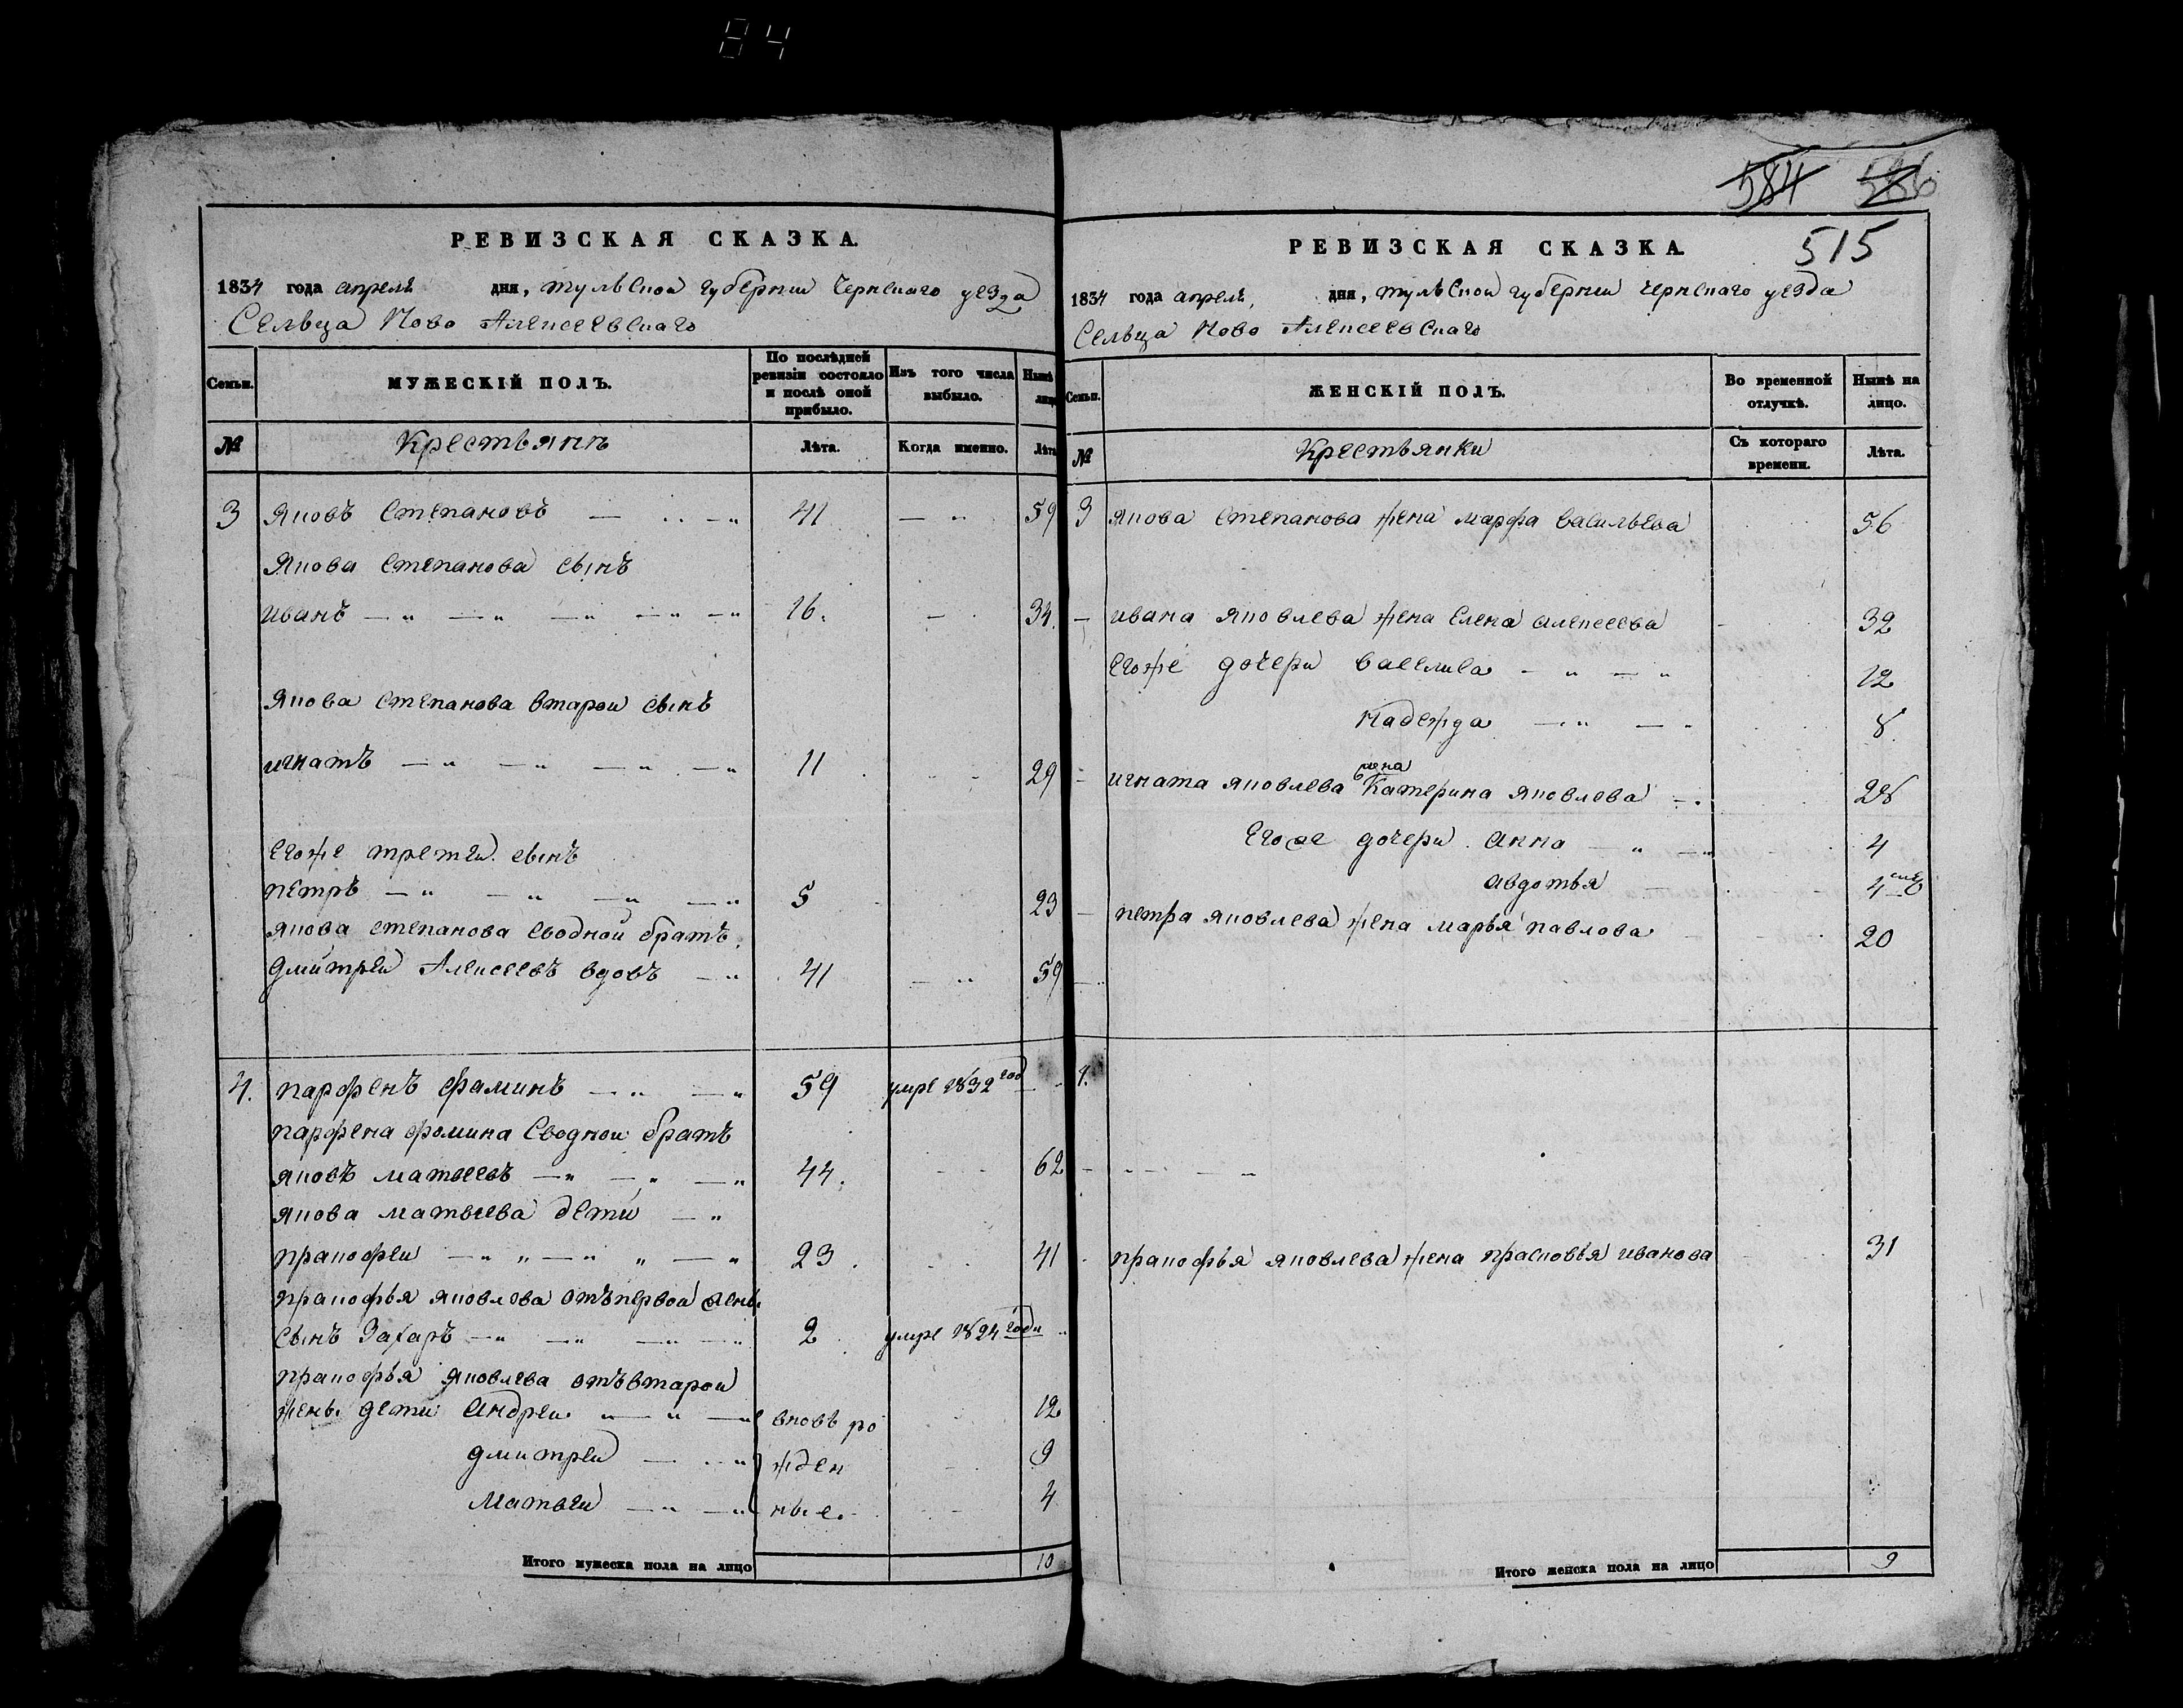 84
РЕВИЗСКАЯ СКАЗКА.
1834 года апреля дня, тульской губернии Чернскаго уезда
Сельца Ново Алексеевскаго
Семьи. МУЖЕСКІЙ ПОЛЪ. По послѣдней ревизіи состояло и послѣ оной прибыло. Изъ того числа выбыло. Нынѣ лицо
№ Крестьянъ Лѣта. Когда именно. Лѣта
3 Яковъ Степановъ 41 59
Якова Степанова сынъ
иванъ 16. 34.
Якова Степанова втарой сынъ
игнатъ 11 29
Егоже третей сынъ
петръ 5 23
якова степанова сводной братъ
Дмитрей Алексеевъ вдовъ 41 59
4. парфенъ фаминъ 59 умре 1832 год
парфена фомина Сводной братъ
яковъ матвеевъ 44. 62
якова матвеева дети
пракофеи 23. 41
пракофья яковлева отъ первой жены
сынъ Захаръ 2 умре 1824 годи
пракофья яковлева отъ втарой
жены дети Андреи вновь ро 12
дмитреи жден 9
Матвеи ные. 4
Итого мужеска пола на лицо 10
584 586
515
РЕВИЗСКАЯ СКАЗКА.
1834 года апреля, дня, тульской губернии чернскаго уезда
Сельца Ново Алексеевскаго
Семьи. ЖЕНСКІЙ ПОЛЪ. Во временной отлучкѣ. Нынѣ на лицо.
№ Крестьянки Съ котораго времени. Лѣта.
3 якова степанова жена марфа васильева 56
ивана яковлева жена Елена алексеева 32
Егоже дочери васелиса 12
надежда 8
жена
игната яковлева Катерина яковлева 28
Егоже дочери Анна 4
авдотья 4
петра яковлева жена марья павлова 20
4.
пракофья яковлева жена прасковья иванова 31
Итого женска пола на лицо 9